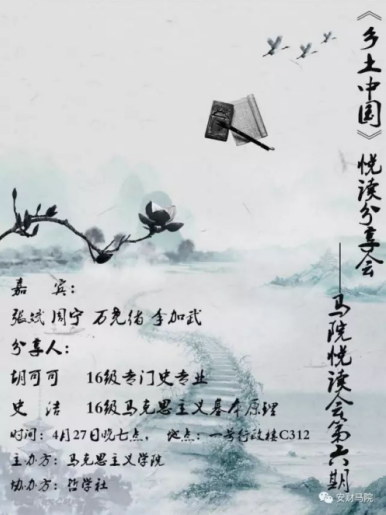 《乡土中国》悦读分享会
——马院悦读会第六期
嘉 宾：
张斌 周宁 万尧绪 李加武
分享人：
胡可可 16级专门史专业
史洁 16级马克思主义基本原理
时间：4月27日晚七点， 地点：一号行政楼C312
主办方：马克思主义学院
协办方：哲学社
安财马院